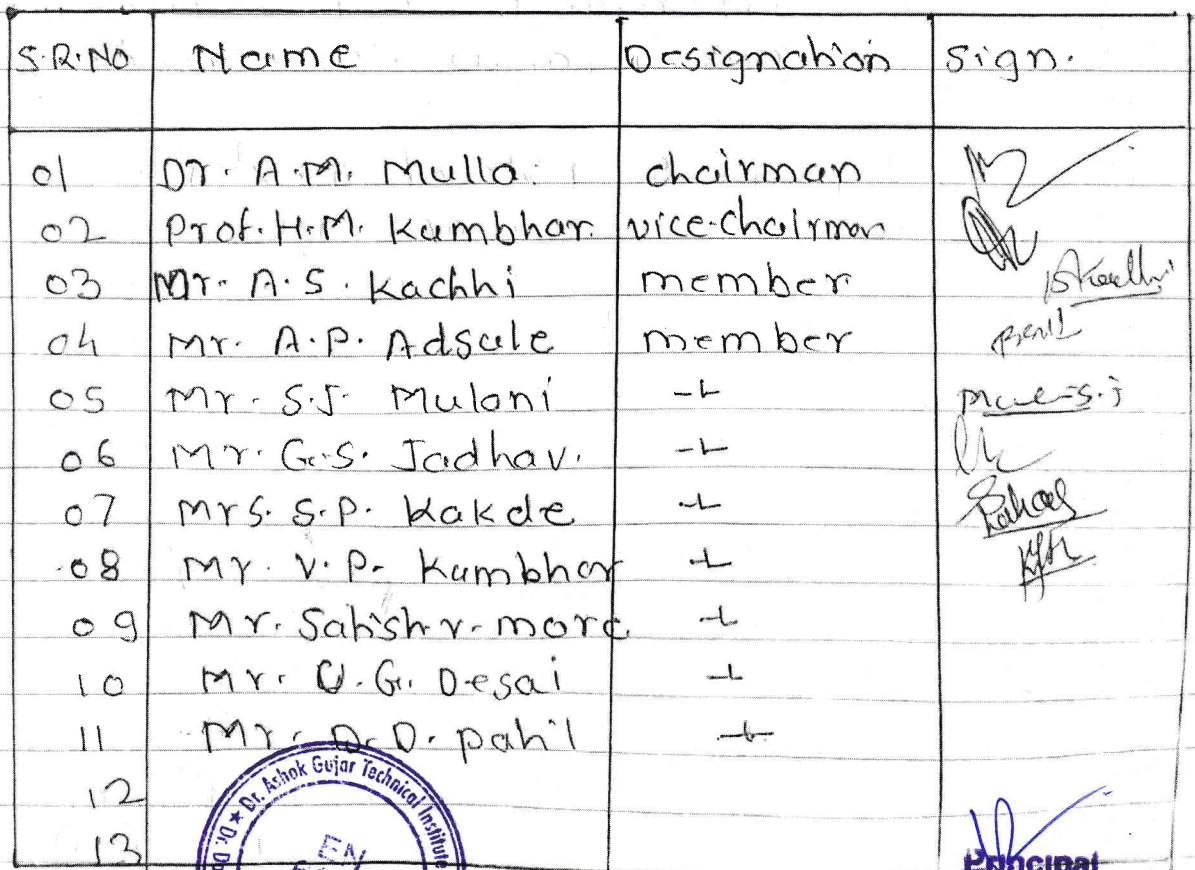 S.R.No Name Designation Sign.
01 Dr. A.M. Mulla chairman
02 Prof. H.M. Kumbhar vice-chairman
03 Mr. A.S. Kachhi member
04 Mr. A.P. Adsule member
05 Mr. S.J. Mulani -L
06 Mr. G.S. Jadhav. -L
07 Mrs. S.P. Kakde -L
08 Mr. V.P. Kumbhar -L
09 Mr. Satish v. more -L
10 Mr. U.G. Desai -L
11 Mr. D.D. patil -L
12
13
Dr. Ashok Gujar Technical Institute
EN
Principal